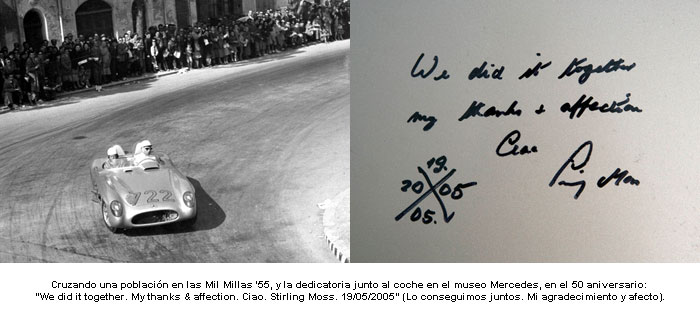 722
We did it together
my thanks + affection
Ciao
19.
20 05
05.
Cruzando una población en las Mil Millas '55, y la dedicatoria junto al coche en el museo Mercedes, en el 50 aniversario:
"We did it together. My thanks & affection. Ciao. Stirling Moss. 19/05/2005" (Lo conseguimos juntos. Mi agradecimiento y afecto).